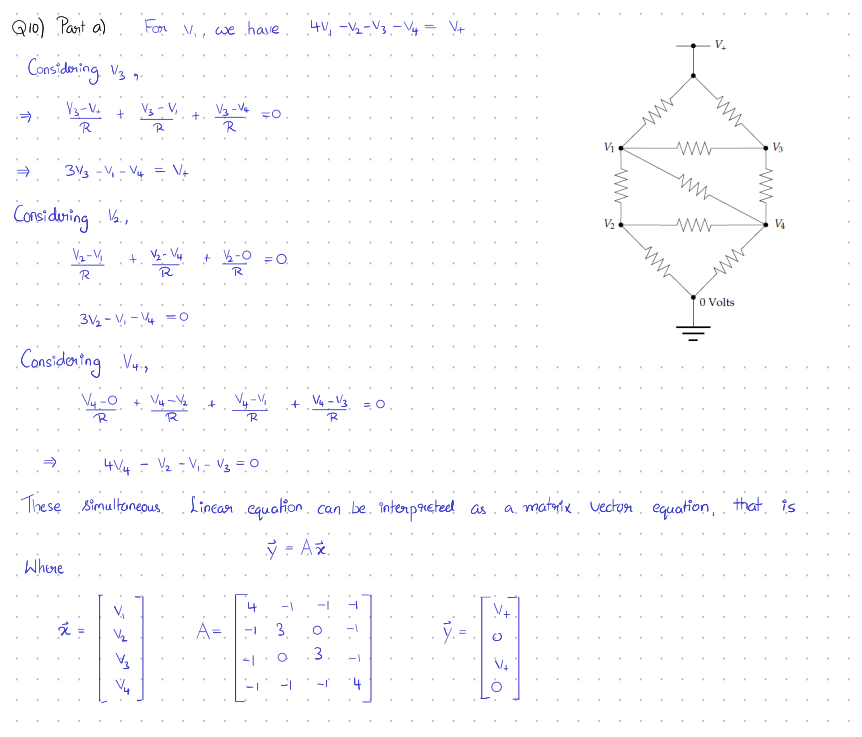 Q10) Part a) For V₁, we have 4V₁ -V₂-V₃ -V₄ = V₊
Considering V₃,
⇒ (V₃-V₊)/R + (V₃-V₁)/R + (V₃-V₄)/R = 0
⇒ 3V₃ -V₁ -V₄ = V₊
Considering V₂,
(V₂-V₁)/R + (V₂-V₄)/R + (V₂-0)/R = 0
3V₂ -V₁ -V₄ = 0
Considering V₄,
(V₄-0)/R + (V₄-V₂)/R + (V₄-V₁)/R + (V₄-V₃)/R = 0
⇒ 4V₄ - V₂ - V₁ - V₃ = 0
These simultaneous Linear equation can be interpreted as a matrix vector equation, that is
y⃗ = A x⃗
Where
x⃗ = [V₁ V₂ V₃ V₄] A = [4 -1 -1 -1; -1 3 0 -1; -1 0 3 -1; -1 -1 -1 4] y⃗ = [V₊ 0 V₊ 0]
V₊
V₁ V₃
V₂ V₄
0 Volts